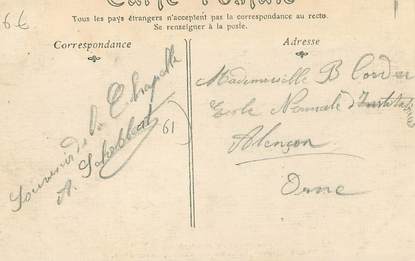 Carte Postale
Tous les pays étrangers n'acceptent pas la correspondance au recto.
Se renseigner à la poste.
Correspondance
Adresse
Souvenir de la Chapelle
A.
61
Mademoiselle B Cordier
Ecole Normale d'Institutrices
Alençon
Orne